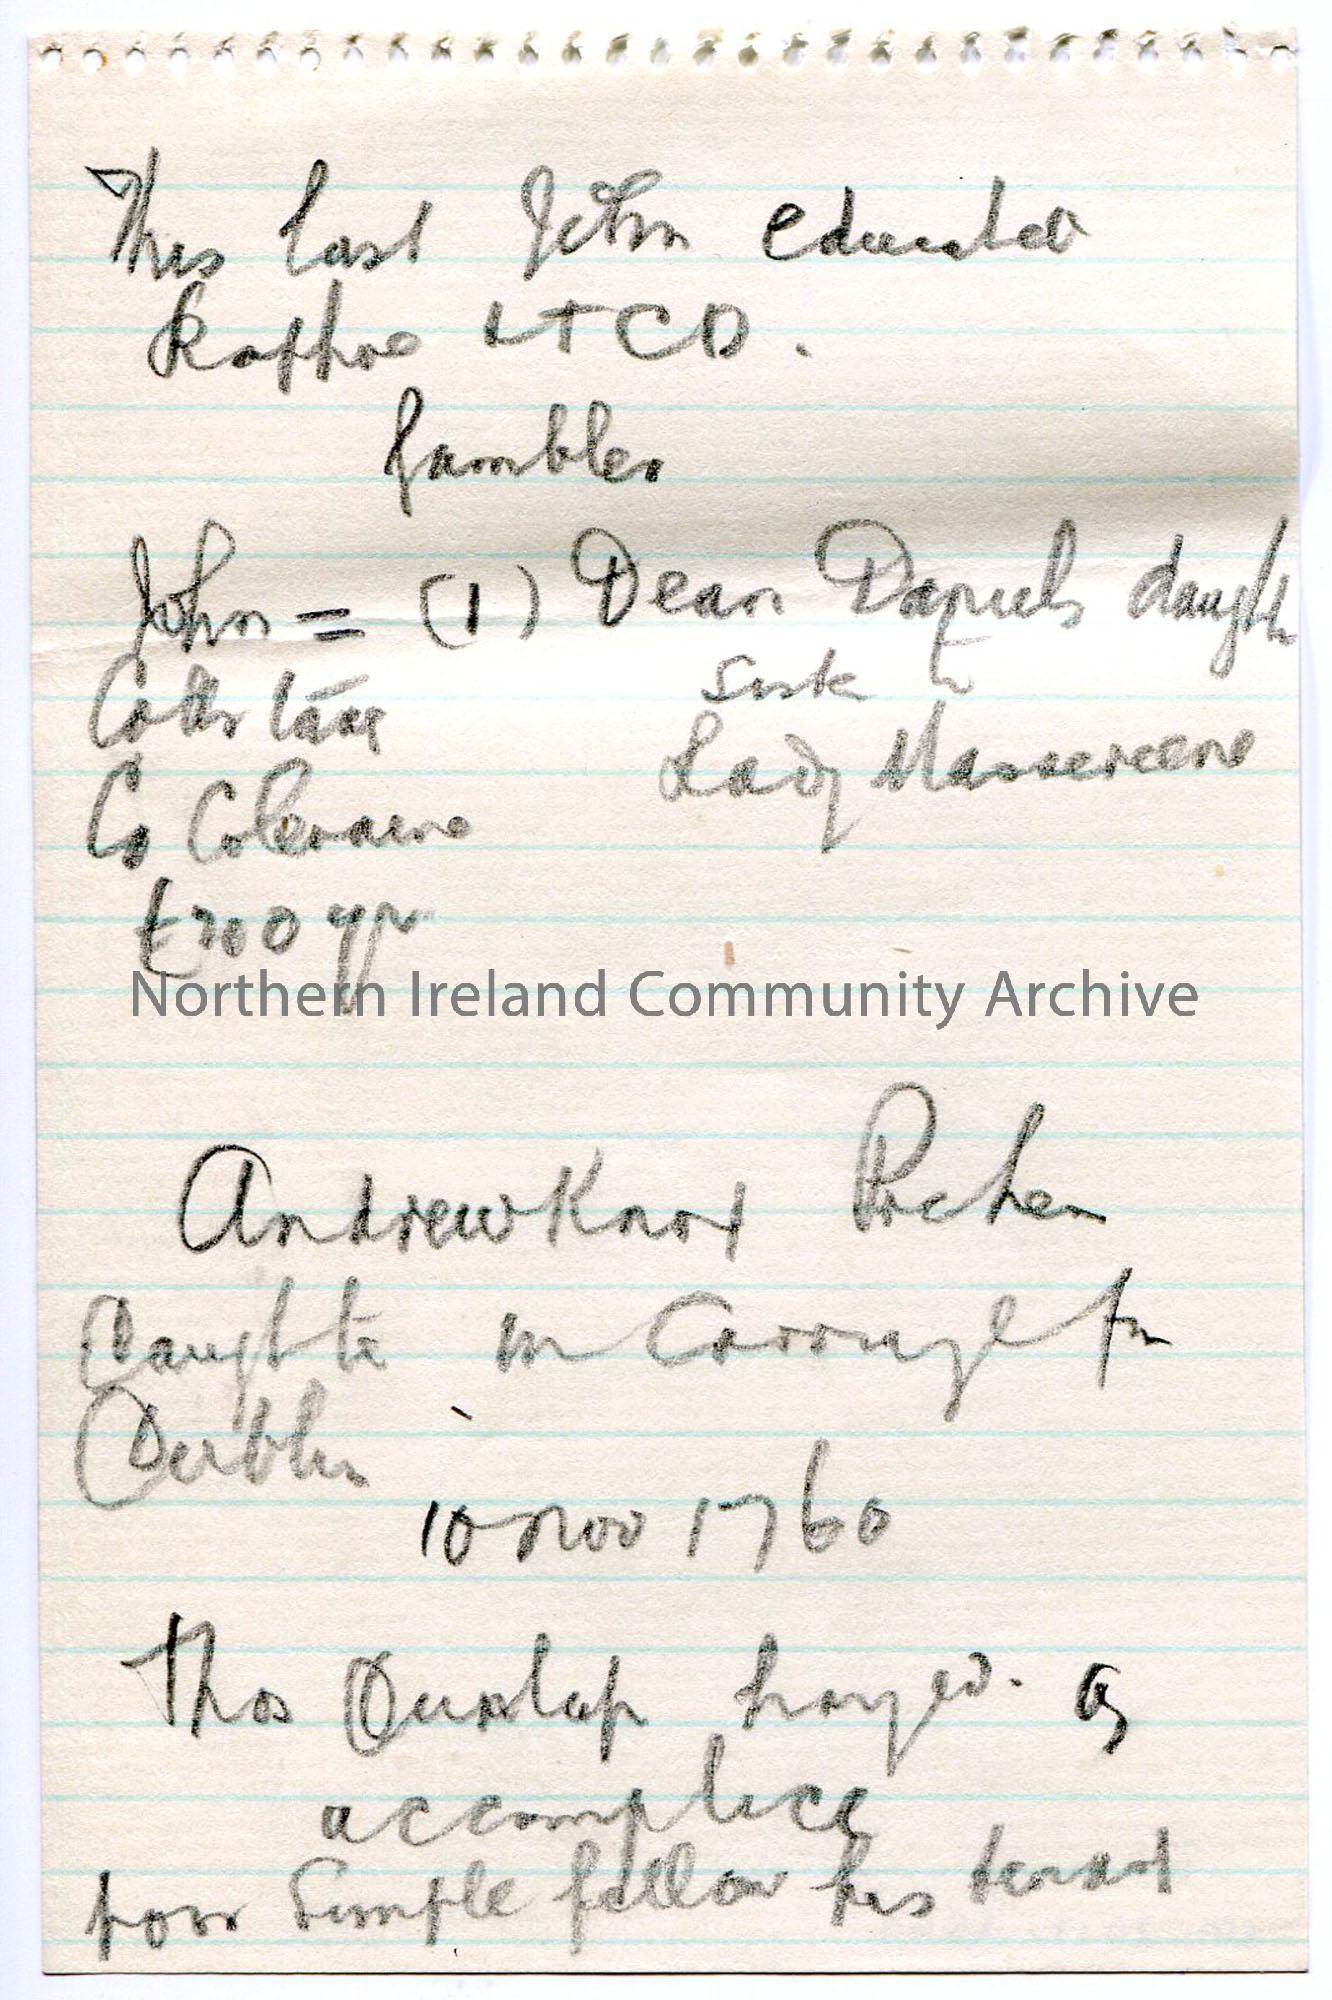 This last John educated
Raphoe & TCD.
Gambler
John = (1) Dean Daniels daughter
sister to
Lady Massereene
Co Coleraine
£300 yr
Northern Ireland Community Archive
Andrew Knox Prehen
Daughter in Carriage for
Dublin
10 Nov 1760
Thos Dunlap hanged. as
accomplice
poor Simple fellow his tenant